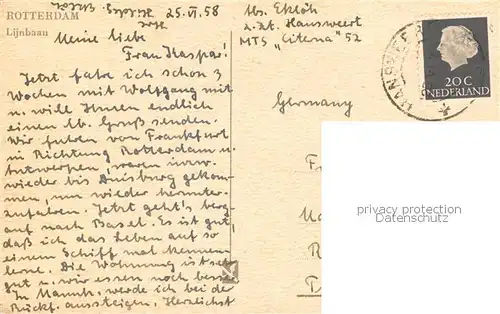 ROTTERDAM
Lijnbaan
25. VI. 58
Meine liebe
Frau Kaspar!
Jetzt fahre ich schon 3
Wochen mit Wolfgang mit
u. will Ihnen endlich
einen lb. Gruß senden.
Wir fuhren von Frankfurt
in Richtung Rotterdam u.
Antwerpen, waren inzw.
wieder bis Duisburg gekom-
men, um wieder herunter-
zufahren. Jetzt geht's berg-
auf nach Basel. Es ist gut,
daß ich das Leben auf so
einem Schiff mal kennen
lerne. Die Wohnung ist sehr
gut u. wir essen noch besser.
In Mannh. werde ich bei der
Rückf. aussteigen. Herzlichst
Abs. Eklöh
z. Zt. Hansweert
MTS „Citena" 52
20 C
NEDERLAND
Germany
F
R
privacy protection
Datenschutz